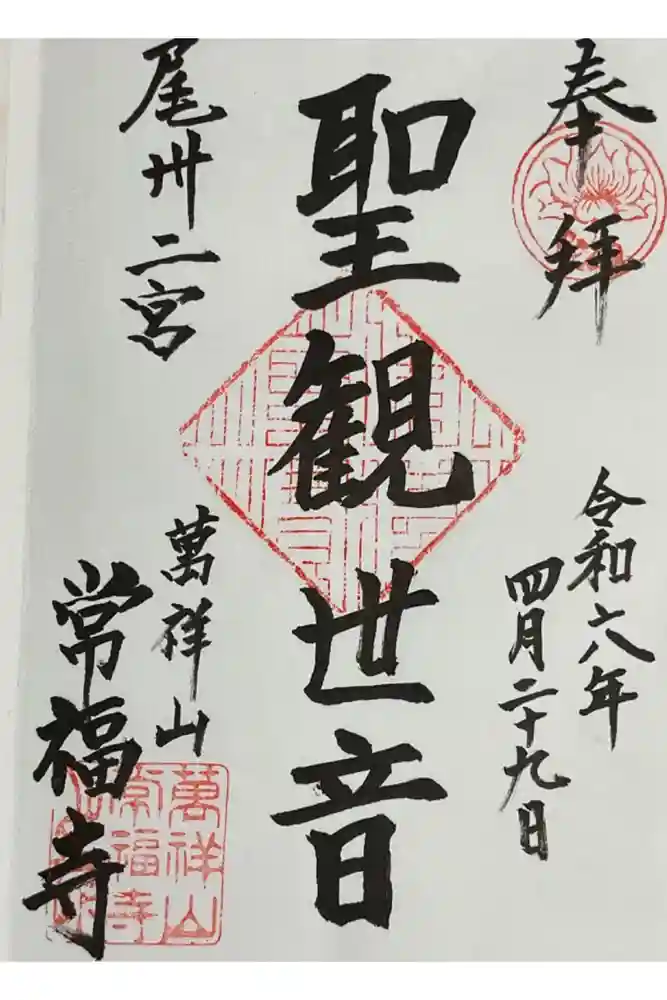 奉拝
令和六年
四月二十九日
聖観世音
尾州二宮
萬祥山
常福寺
萬祥山
常福寺